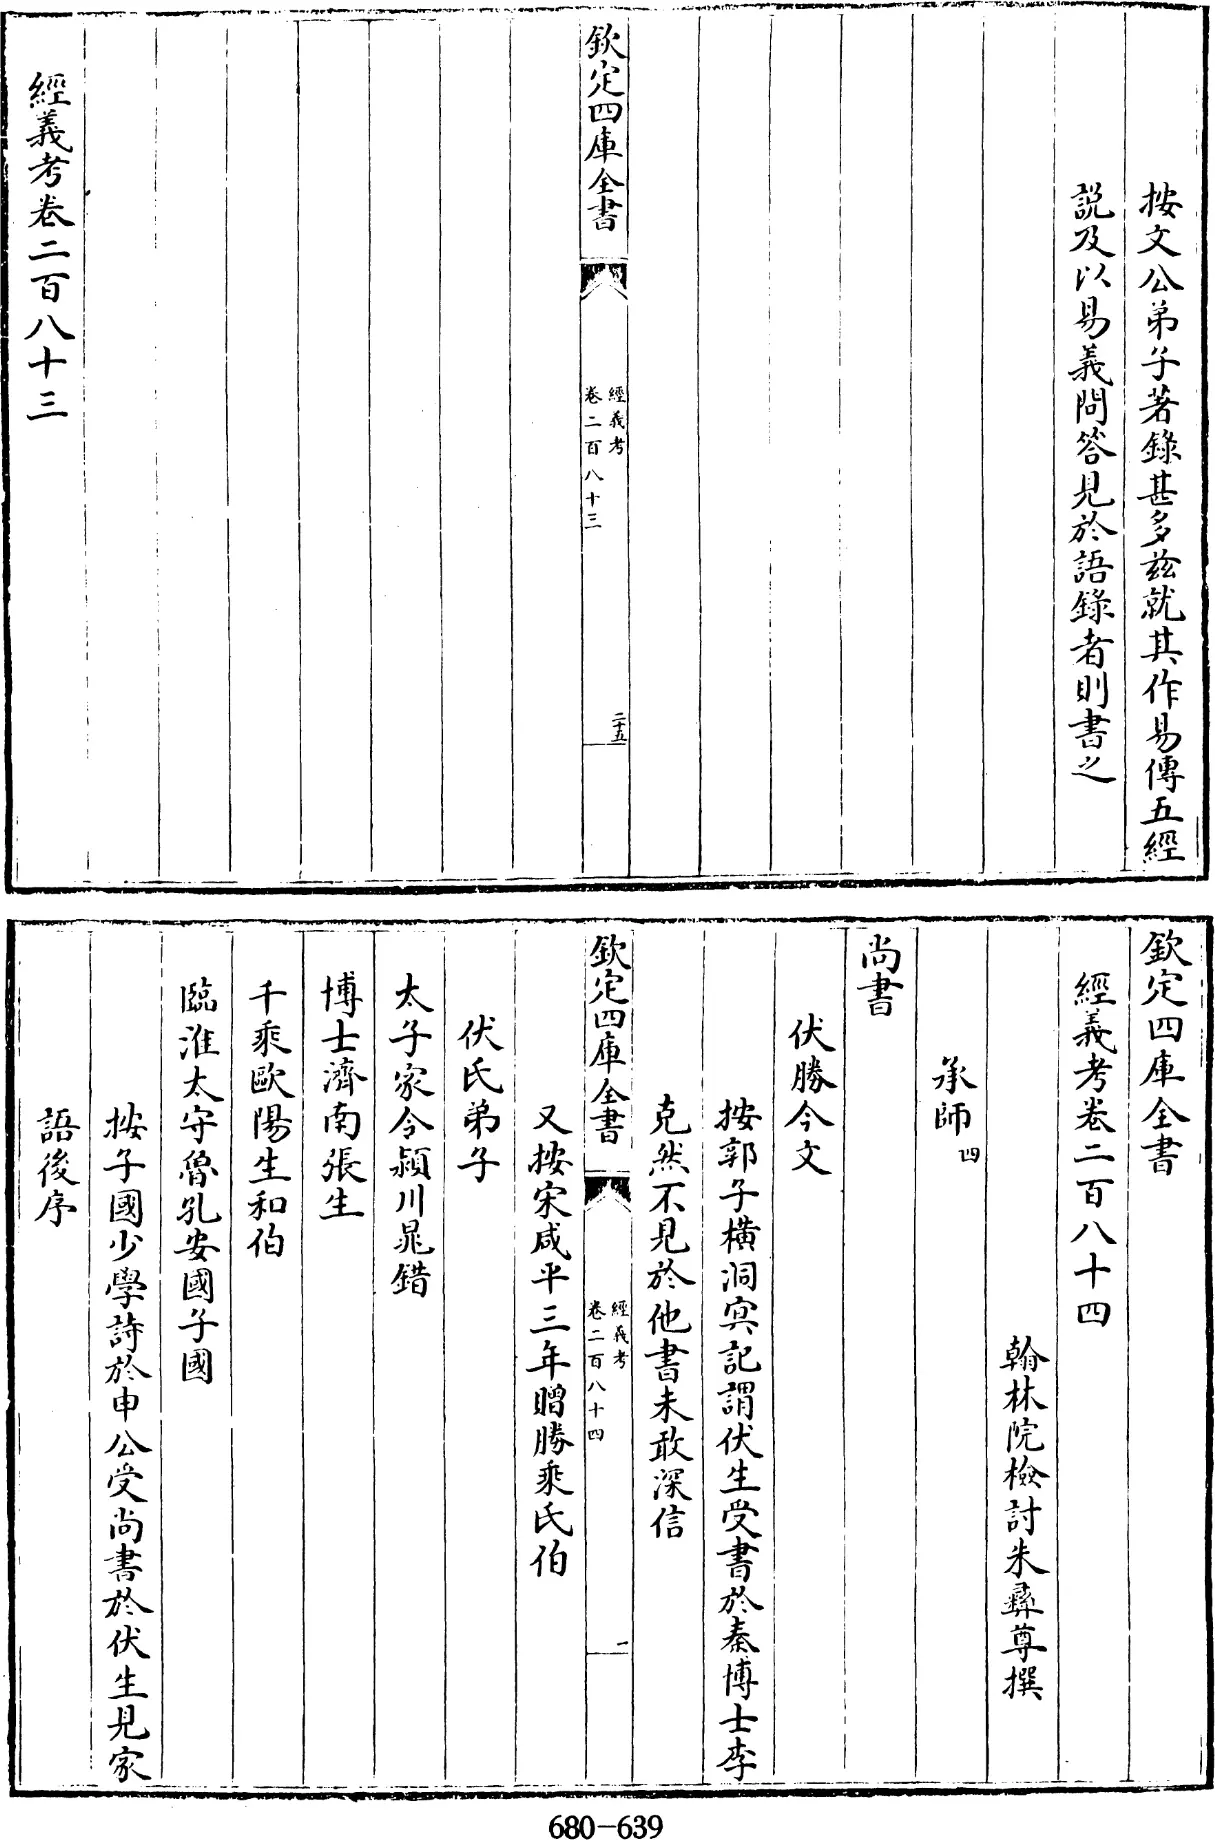 按文公弟子著錄甚多茲就其作易傳五經
說及以易義問答見於語錄者則書之
欽定四庫全書
經義考
卷二百八十三
二十五
經義考卷二百八十三
欽定四庫全書
經義考卷二百八十四
翰林院檢討朱彝尊撰
承師四
尚書
伏勝今文
按郭子橫洞冥記謂伏生受書於秦博士李
克然不見於他書未敢深信
欽定四庫全書
經義考
卷二百八十四
一
又按宋咸平三年贈勝乘氏伯
伏氏弟子
太子家令潁川晁錯
博士濟南張生
千乘歐陽生和伯
臨淮太守魯孔安國子國
按子國少學詩於申公受尚書於伏生見家
語後序
680-639